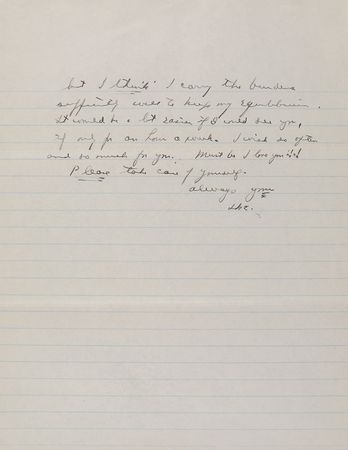 but I think I carry the burdens
sufficiently well to keep my equilibrium.
It would be a bit easier if I could see you,
if only for an hour a week. I wish so often
and so much for you. Must be I love you!!!
Please take care of yourself.
always your